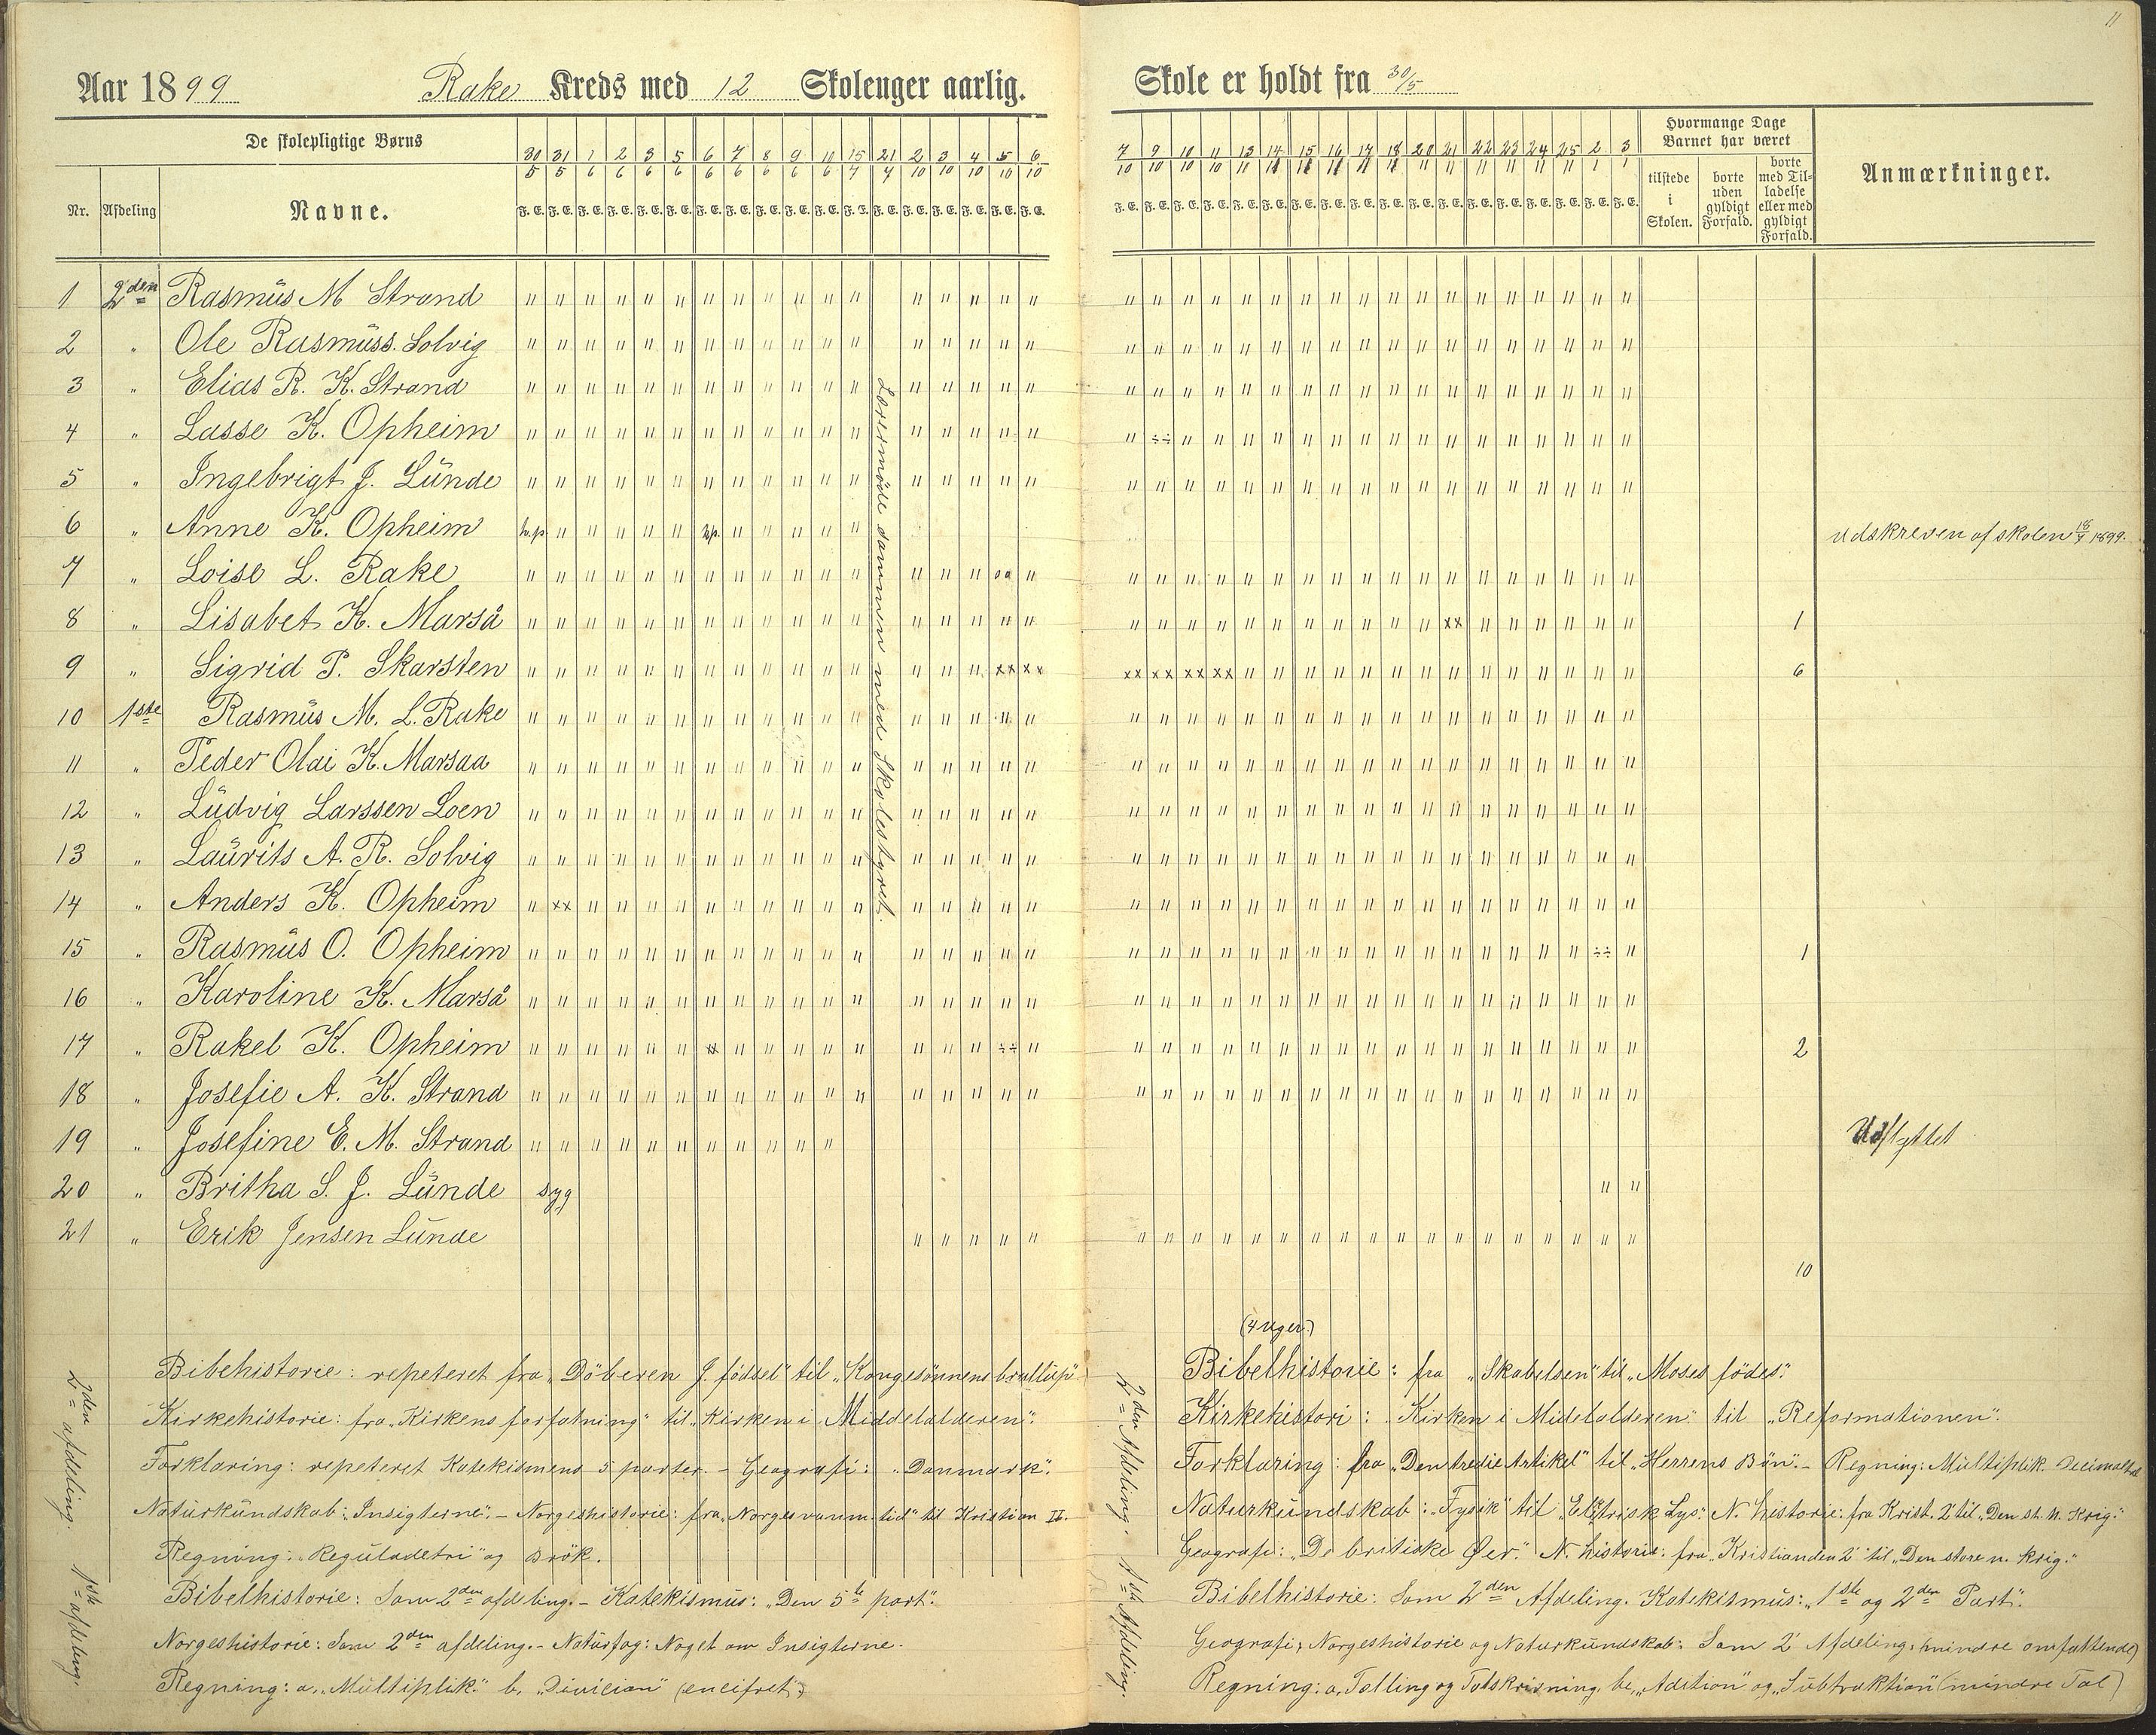 11
Aar 1899 Rake Kreds med 12 Skoleuger aarlig.
De skolepligtige Børns
Nr. Afdeling Navne.
30/5 31/5 1/6 2/6 3/6 5/6 6/6 7/6 8/6 9/6 10/6 15/7 21/7 2/10 3/10 4/10 5/10 6/10
F. E. F. E. F. E. F. E. F. E. F. E. F. E. F. E. F. E. F. E. F. E. F. E. F. E. F. E. F. E. F. E. F. E. F. E.
1 2den Rasmus M Strand
2 " Ole Rasmuss. Solvig
3 " Elias R. K. Strand
4 " Lasse K. Opheim
5 " Ingebrigt J. Lunde
6 " Anne K. Opheim
7 " Loise L. Rake
8 " Lisabet K. Marså
9 " Sigrid P. Skarsten
10 1ste Rasmus M. L. Rake
11 " Peder Olai K. Marsaa
12 " Ludvig Larssen Loen
13 " Laurits A. R. Solvig
14 " Anders K. Opheim
15 " Rasmus O. Opheim
16 " Karoline K. Marså
17 " Rakel K. Opheim
18 " Josefie A. K. Strand
19 " Josefine E. M. Strand
20 " Britha S. J. Lunde syg
21 " Erik Jensen Lunde
Lærermöde sammen med Skolestyret.
2den afdeling.
Bibehistorie: repeteret fra "Döberen J. födsel" til "Kongesönnens bryllup".
Kirkehistorie: fra "Kirkens forfatning" til "Kirken i Middelalderen".
Forklaring: repeteret Katekismens 5 parter. - Geografi: "Danmark".
Naturkundskab: "Insigterne". - Norgeshistorie: fra "Norges vanm. tid" til Kristian II.
Regning: "Reguladetri" og Brök.
1ste afdeling.
Bibelhistorie: Som 2den afdeling. - Katekismus: "Den 5te part".
Norgeshistorie: Som 2den afdeling. - Naturfag: Noget om Insigterne.
Regning: a, "Multiplik." b, "Division" (encifret")
Skole er holdt fra 30/5
7/10 9/10 10/10 11/10 13/11 14/11 15/11 16/11 17/11 18/11 20/11 21/11 22/11 23/11 24/11 25/11 2/1 3/1
F. E. F. E. F. E. F. E. F. E. F. E. F. E. F. E. F. E. F. E. F. E. F. E. F. E. F. E. F. E. F. E. F. E. F. E.
Hvormange Dage Barnet har været
tilstede i Skolen.
borte uden gyldigt Forfald.
borte med Tilladelse eller med gyldigt Forfald.
Anmærkninger.
Udskreven af skolen 18/7 1899.
1
6
1
2
Udflyttet
10
(4 uger)
2den Afdeling.
Bibelhistorie: fra "Skabelsen" til "Moses födes".
Kirkehistori: "Kirken i Midelalderen" til "Reformationen".
Forklaring: fra "Den tredie Artikel" til "Herrens Bön". - Regning: Multiplik. Decimaltal
Naturkundskab: "Fysik" til "Elektrisk Lys". N. historie: fra Krist. 2 til "Den st. N. Krig."
Geografi: "De britiske Øer." N. historie: fra "Kristian den 2" til "Den store n. krig."
1ste Afdeling.
Bibelhistorie: Som 2den Afdeling. Katekismus: "1ste og 2den Part".
Geografi, Norgeshistorie og Naturkundskab: Som 2 Afdeling: (mindre omfattende)
Regning: a, Telling og Talskrivning, b, "Adition" og "Subtraktion" (mindre Tal)